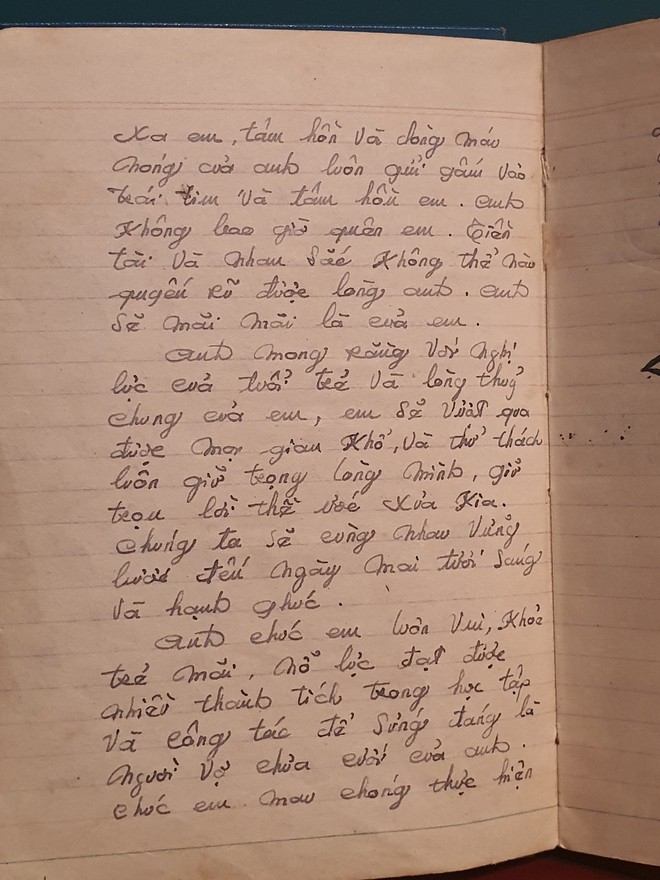 Xa em, tâm hồn và dòng máu
nóng của anh luôn gửi gấm vào
trái tim và tâm hồn em. Anh
Không bao giờ quên em. Tiền
tài và nhan sắc Không thể nào
quyến rũ được lòng anh. Anh
sẽ mãi mãi là của em.
Anh mong rằng với nghị
lực của tuổi trẻ và lòng thuỷ
chung của em, em sẽ vượt qua
được mọi gian Khổ, và thử thách
luôn giữ trọng lòng mình, giữ
trọn lời thề ước xưa Kia.
Chúng ta sẽ cùng nhau vững
bước đến ngày mai tươi sáng
và hạnh phúc.
Anh chúc em luôn vui, Khoẻ
trẻ mãi, nỗ lực đạt được
nhiều thành tích trong học tập
và công tác để xứng đáng là
người vợ chưa cưới của anh.
chúc em mau chóng thực hiện